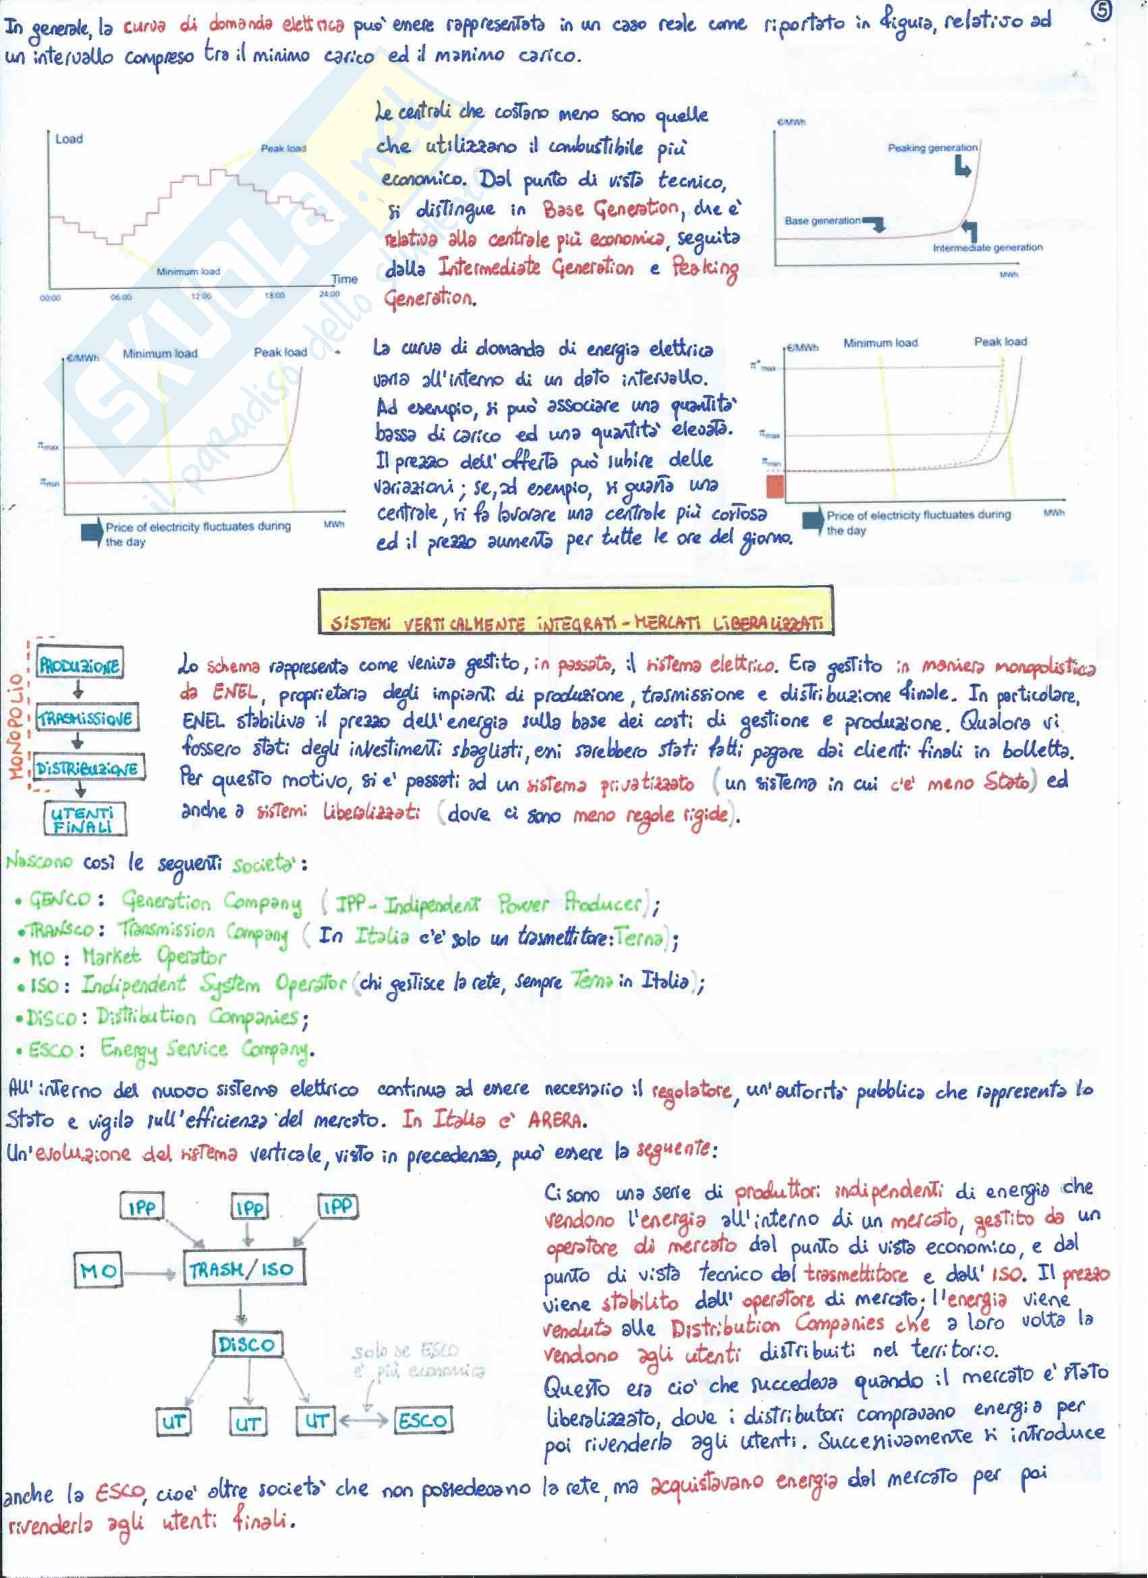 5
In generale, la curva di domanda elettrica può essere rappresentata in un caso reale come riportato in figura, relativo ad
un intervallo compreso tra il minimo carico ed il massimo carico.
Load
Peak load
Minimum load
Time
00:00 06:00 12:00 18:00 24:00
Le centrali che costano meno sono quelle
che utilizzano il combustibile più
economico. Dal punto di vista tecnico,
si distingue in Base Generation, che è
relativa alla centrale più economica, seguita
dalla Intermediate Generation e Peaking
Generation.
€/MWh
Peaking generation
Base generation
Intermediate generation
MWh
SKUOLA.net
il paradiso dello studente
€/MWh Minimum load Peak load
πmax
πmin
Price of electricity fluctuates during
the day
MWh
La curva di domanda di energia elettrica
varia all'interno di un dato intervallo.
Ad esempio, si può associare una quantità
bassa di carico ed una quantità elevata.
Il prezzo dell'offerta può subire delle
variazioni; se, ad esempio, si guasta una
centrale, si fa lavorare una centrale più costosa
ed il prezzo aumenta per tutte le ore del giorno.
€/MWh Minimum load Peak load
π*max
πmax
πmin
Price of electricity fluctuates during
the day
MWh
SISTEMI VERTICALMENTE INTEGRATI - MERCATI LIBERALIZZATI
MONOPOLIO
PRODUZIONE
TRASMISSIONE
DISTRIBUZIONE
UTENTI
FINALI
Lo schema rappresenta come veniva gestito, in passato, il sistema elettrico. Era gestito in maniera monopolistica
da ENEL, proprietaria degli impianti di produzione, trasmissione e distribuzione finale. In particolare,
ENEL stabiliva il prezzo dell'energia sulla base dei costi di gestione e produzione. Qualora vi
fossero stati degli investimenti sbagliati, essi sarebbero stati fatti pagare dai clienti finali in bolletta.
Per questo motivo, si è passati ad un sistema privatizzato (un sistema in cui c'è meno Stato) ed
anche a sistemi liberalizzati (dove ci sono meno regole rigide).
Nascono così le seguenti società:
• GENCO: Generation Company (IPP - Indipendent Power Producer);
• TRANSCO: Transmission Company (In Italia c'è solo un trasmettitore: Terna);
• MO: Market Operator
• ISO: Indipendent System Operator (chi gestisce la rete, sempre Terna in Italia);
• DISCO: Distribution Companies;
• ESCO: Energy Service Company.
All'interno del nuovo sistema elettrico continua ad essere necessario il regolatore, un'autorità pubblica che rappresenta lo
Stato e vigila sull'efficienza del mercato. In Italia è ARERA.
Un'evoluzione del sistema verticale, visto in precedenza, può essere la seguente:
IPP IPP IPP
MO TRASM/ISO
DISCO
solo se ESCO
è più economica
UT UT UT ESCO
Ci sono una serie di produttori indipendenti di energia che
vendono l'energia all'interno di un mercato, gestito da un
operatore di mercato dal punto di vista economico, e dal
punto di vista tecnico dal trasmettitore e dall'ISO. Il prezzo
viene stabilito dall'operatore di mercato; l'energia viene
venduta alle Distribution Companies che a loro volta la
vendono agli utenti distribuiti nel territorio.
Questo era ciò che succedeva quando il mercato è stato
liberalizzato, dove i distributori compravano energia per
poi rivenderla agli utenti. Successivamente si introduce
anche la ESCO, cioè altre società che non possedevano la rete, ma acquistavano energia dal mercato per poi
rivenderla agli utenti finali.